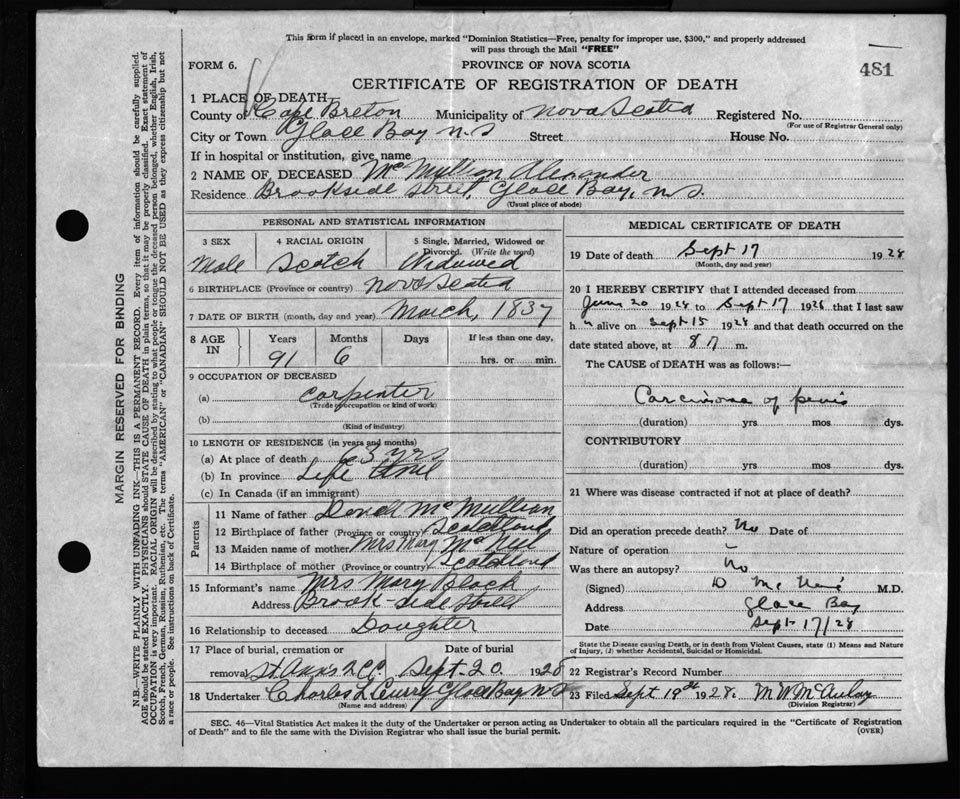 This form if placed in an envelope, marked "Dominion Statistics—Free, penalty for improper use, $300," and properly addressed
will pass through the Mail "FREE"
FORM 6.
PROVINCE OF NOVA SCOTIA
481
CERTIFICATE OF REGISTRATION OF DEATH
1 PLACE OF DEATH
County of Cape Breton Municipality of Nova Scotia Registered No.
(For use of Registrar General only)
City or Town Glace Bay N.S Street House No.
If in hospital or institution, give name
2 NAME OF DECEASED McMullion Alexander
Residence Brookside Street, Glace Bay, N.S.
(Usual place of abode)
PERSONAL AND STATISTICAL INFORMATION
3 SEX 4 RACIAL ORIGIN 5 Single, Married, Widowed or
Divorced. (Write the word)
Male Scotch Widowed
6 BIRTHPLACE (Province or country) Nova Scotia
7 DATE OF BIRTH (month, day and year) March, 1837
8 AGE IN Years Months Days If less than one day,
91 6 hrs. or min.
9 OCCUPATION OF DECEASED
(a) Carpenter
(Trade, occupation or kind of work)
(b)
(Kind of industry)
10 LENGTH OF RESIDENCE (in years and months)
(a) At place of death 63 yrs
(b) In province Life time
(c) In Canada (if an immigrant)
Parents
11 Name of father McMullion
12 Birthplace of father (Province or country) Scotland
13 Maiden name of mother Mrs Mary McNeil
14 Birthplace of mother (Province or country) Scotland
15 Informant's name Mrs Mary Black
Address Brook side
16 Relationship to deceased Daughter
17 Place of burial, cremation or Date of burial
removal St. Anns R.C.C. Sept. 20 1928
18 Undertaker Charles Curry Glace Bay N.S
(Name and address)
MEDICAL CERTIFICATE OF DEATH
19 Date of death Sept 17 1928
(Month, day and year)
20 I HEREBY CERTIFY that I attended deceased from
June 20 1928 to Sept 17 1928 that I last saw
h alive on Sept 15 1928 and that death occurred on the
date stated above, at m.
The CAUSE OF DEATH was as follows:—
Carcinoma of penis
(duration) yrs mos dys.
CONTRIBUTORY
(duration) yrs. mos dys.
21 Where was disease contracted if not at place of death?
Did an operation precede death? No Date of
Nature of operation
Was there an autopsy? No
(Signed) M.D.
Address Glace Bay
Date Sept 17/28
State the Disease causing Death, or in death from Violent Causes, state (1) Means and Nature
of Injury, (2) whether Accidental, Suicidal or Homicidal.
22 Registrar's Record Number
23 Filed Sept 19th 1928. M W McAulay
(Division Registrar)
SEC. 46—Vital Statistics Act makes it the duty of the Undertaker or person acting as Undertaker to obtain all the particulars required in the "Certificate of Registration
of Death" and to file the same with the Division Registrar who shall issue the burial permit.
(OVER)
MARGIN RESERVED FOR BINDING
N.B.—WRITE PLAINLY WITH UNFADING INK—THIS IS A PERMANENT RECORD. Every item of information should be carefully supplied.
AGE should be stated EXACTLY. PHYSICIANS should STATE CAUSE OF DEATH in plain terms, so that it may be properly classified. Exact statement of
OCCUPATION is very important. RACIAL ORIGIN will be described by stating to what people or tongue the deceased person belonged, whether English, Irish,
Scotch, French, German, Russian, Ruthenian, etc. The terms "AMERICAN" or "CANADIAN" SHOULD NOT BE USED as they express citizenship but not
a race or people. See instructions on back of Certificate.